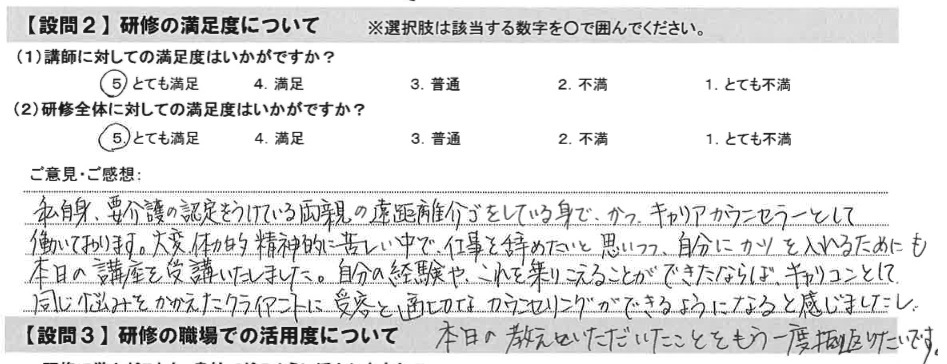 【設問2】研修の満足度について ※選択肢は該当する数字を○で囲んでください。
(1)講師に対しての満足度はいかがですか？
5 とても満足 4. 満足 3. 普通 2. 不満 1. とても不満
(2)研修全体に対しての満足度はいかがですか？
5. とても満足 4. 満足 3. 普通 2. 不満 1. とても不満
ご意見・ご感想:
私自身、要介護の認定をうけている両親の遠距離介ゴをしている身で、かつ、キャリアカウンセラーとして
働いております。大変体力的精神的に苦しい中で、仕事を辞めたいと思いつつ、自分にカツを入れるためにも
本日の講座を受講いたしました。自分の経験や、これを乗りこえることができたならば、キャリコンとして
同じ悩みをかかえたクライアントに受容と適切なカウンセリングができるようになると感じましたし、
【設問3】研修の職場での活用度について 本日の教えいただいたことをもう一度振返りたいです。